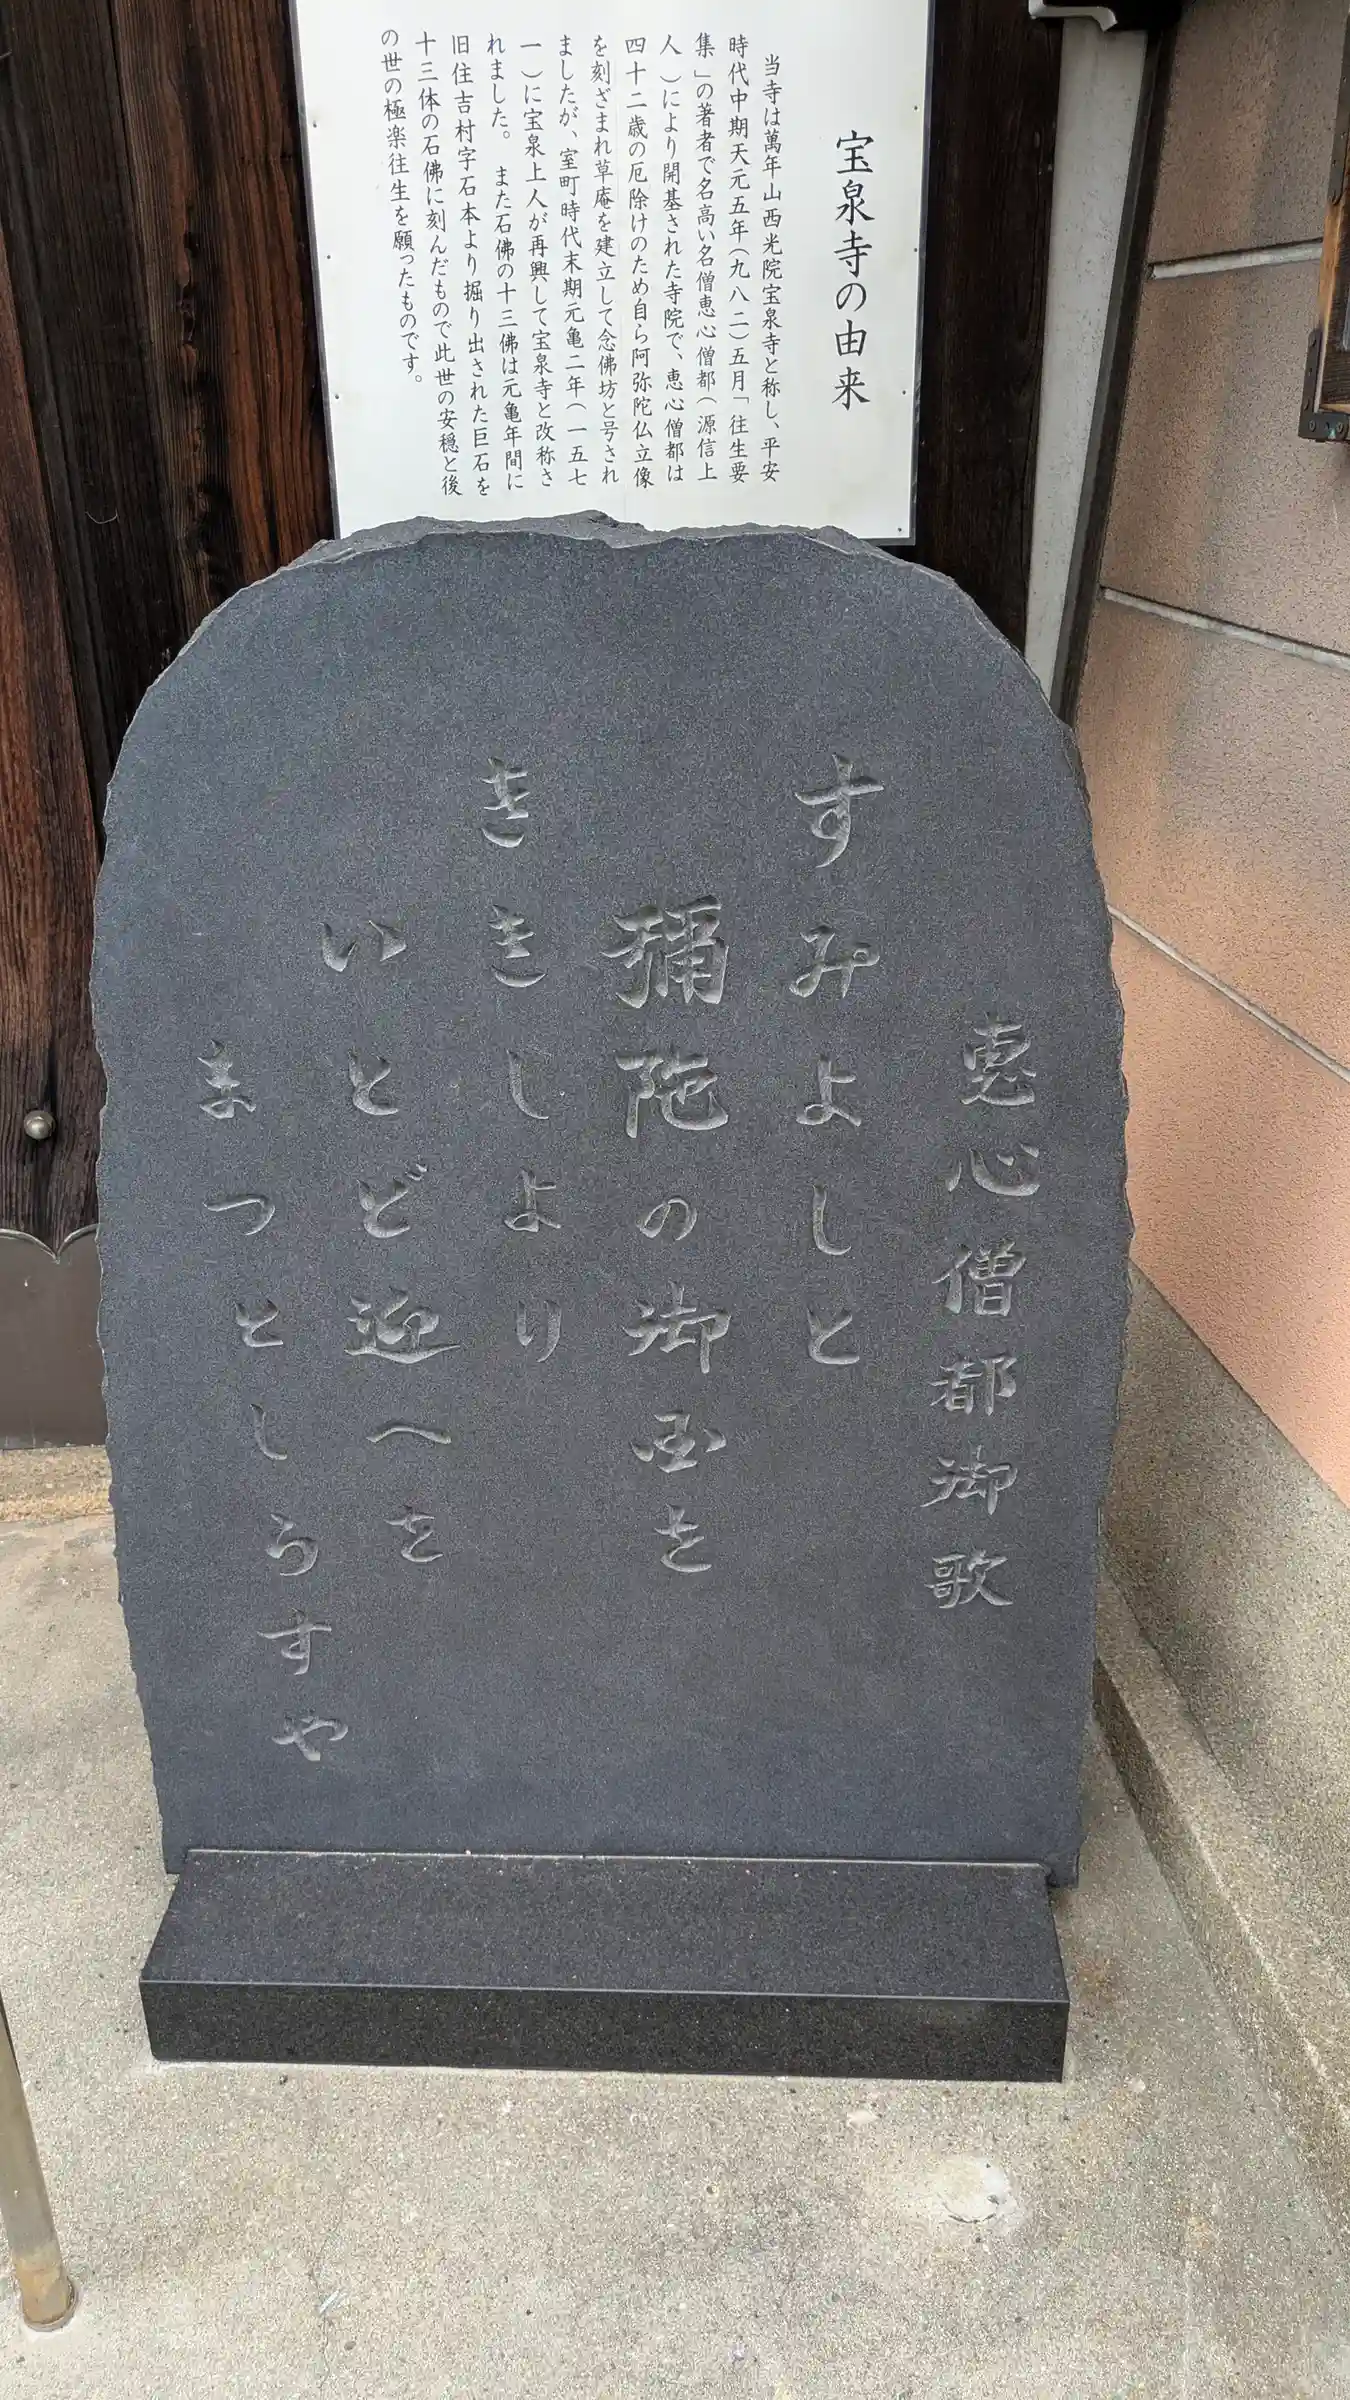 宝泉寺の由来
当寺は萬年山西光院宝泉寺と称し、平安
時代中期天元五年(九八二)五月「往生要
集」の著者で名高い名僧恵心僧都(源信上
人)により開基された寺院で、恵心僧都は
四十二歳の厄除けのため自ら阿弥陀仏立像
を刻ざまれ草庵を建立して念佛坊と号され
ましたが、室町時代末期元亀二年(一五七
一)に宝泉上人が再興して宝泉寺と改称さ
れました。 また石佛の十三佛は元亀年間に
旧住吉村字石本より掘り出された巨石を
十三体の石佛に刻んだもので此世の安穏と後
の世の極楽往生を願ったものです。
恵心僧都御歌
すみよしと
彌陀の御国を
ききしより
いとど迎へを
まつとしらすや